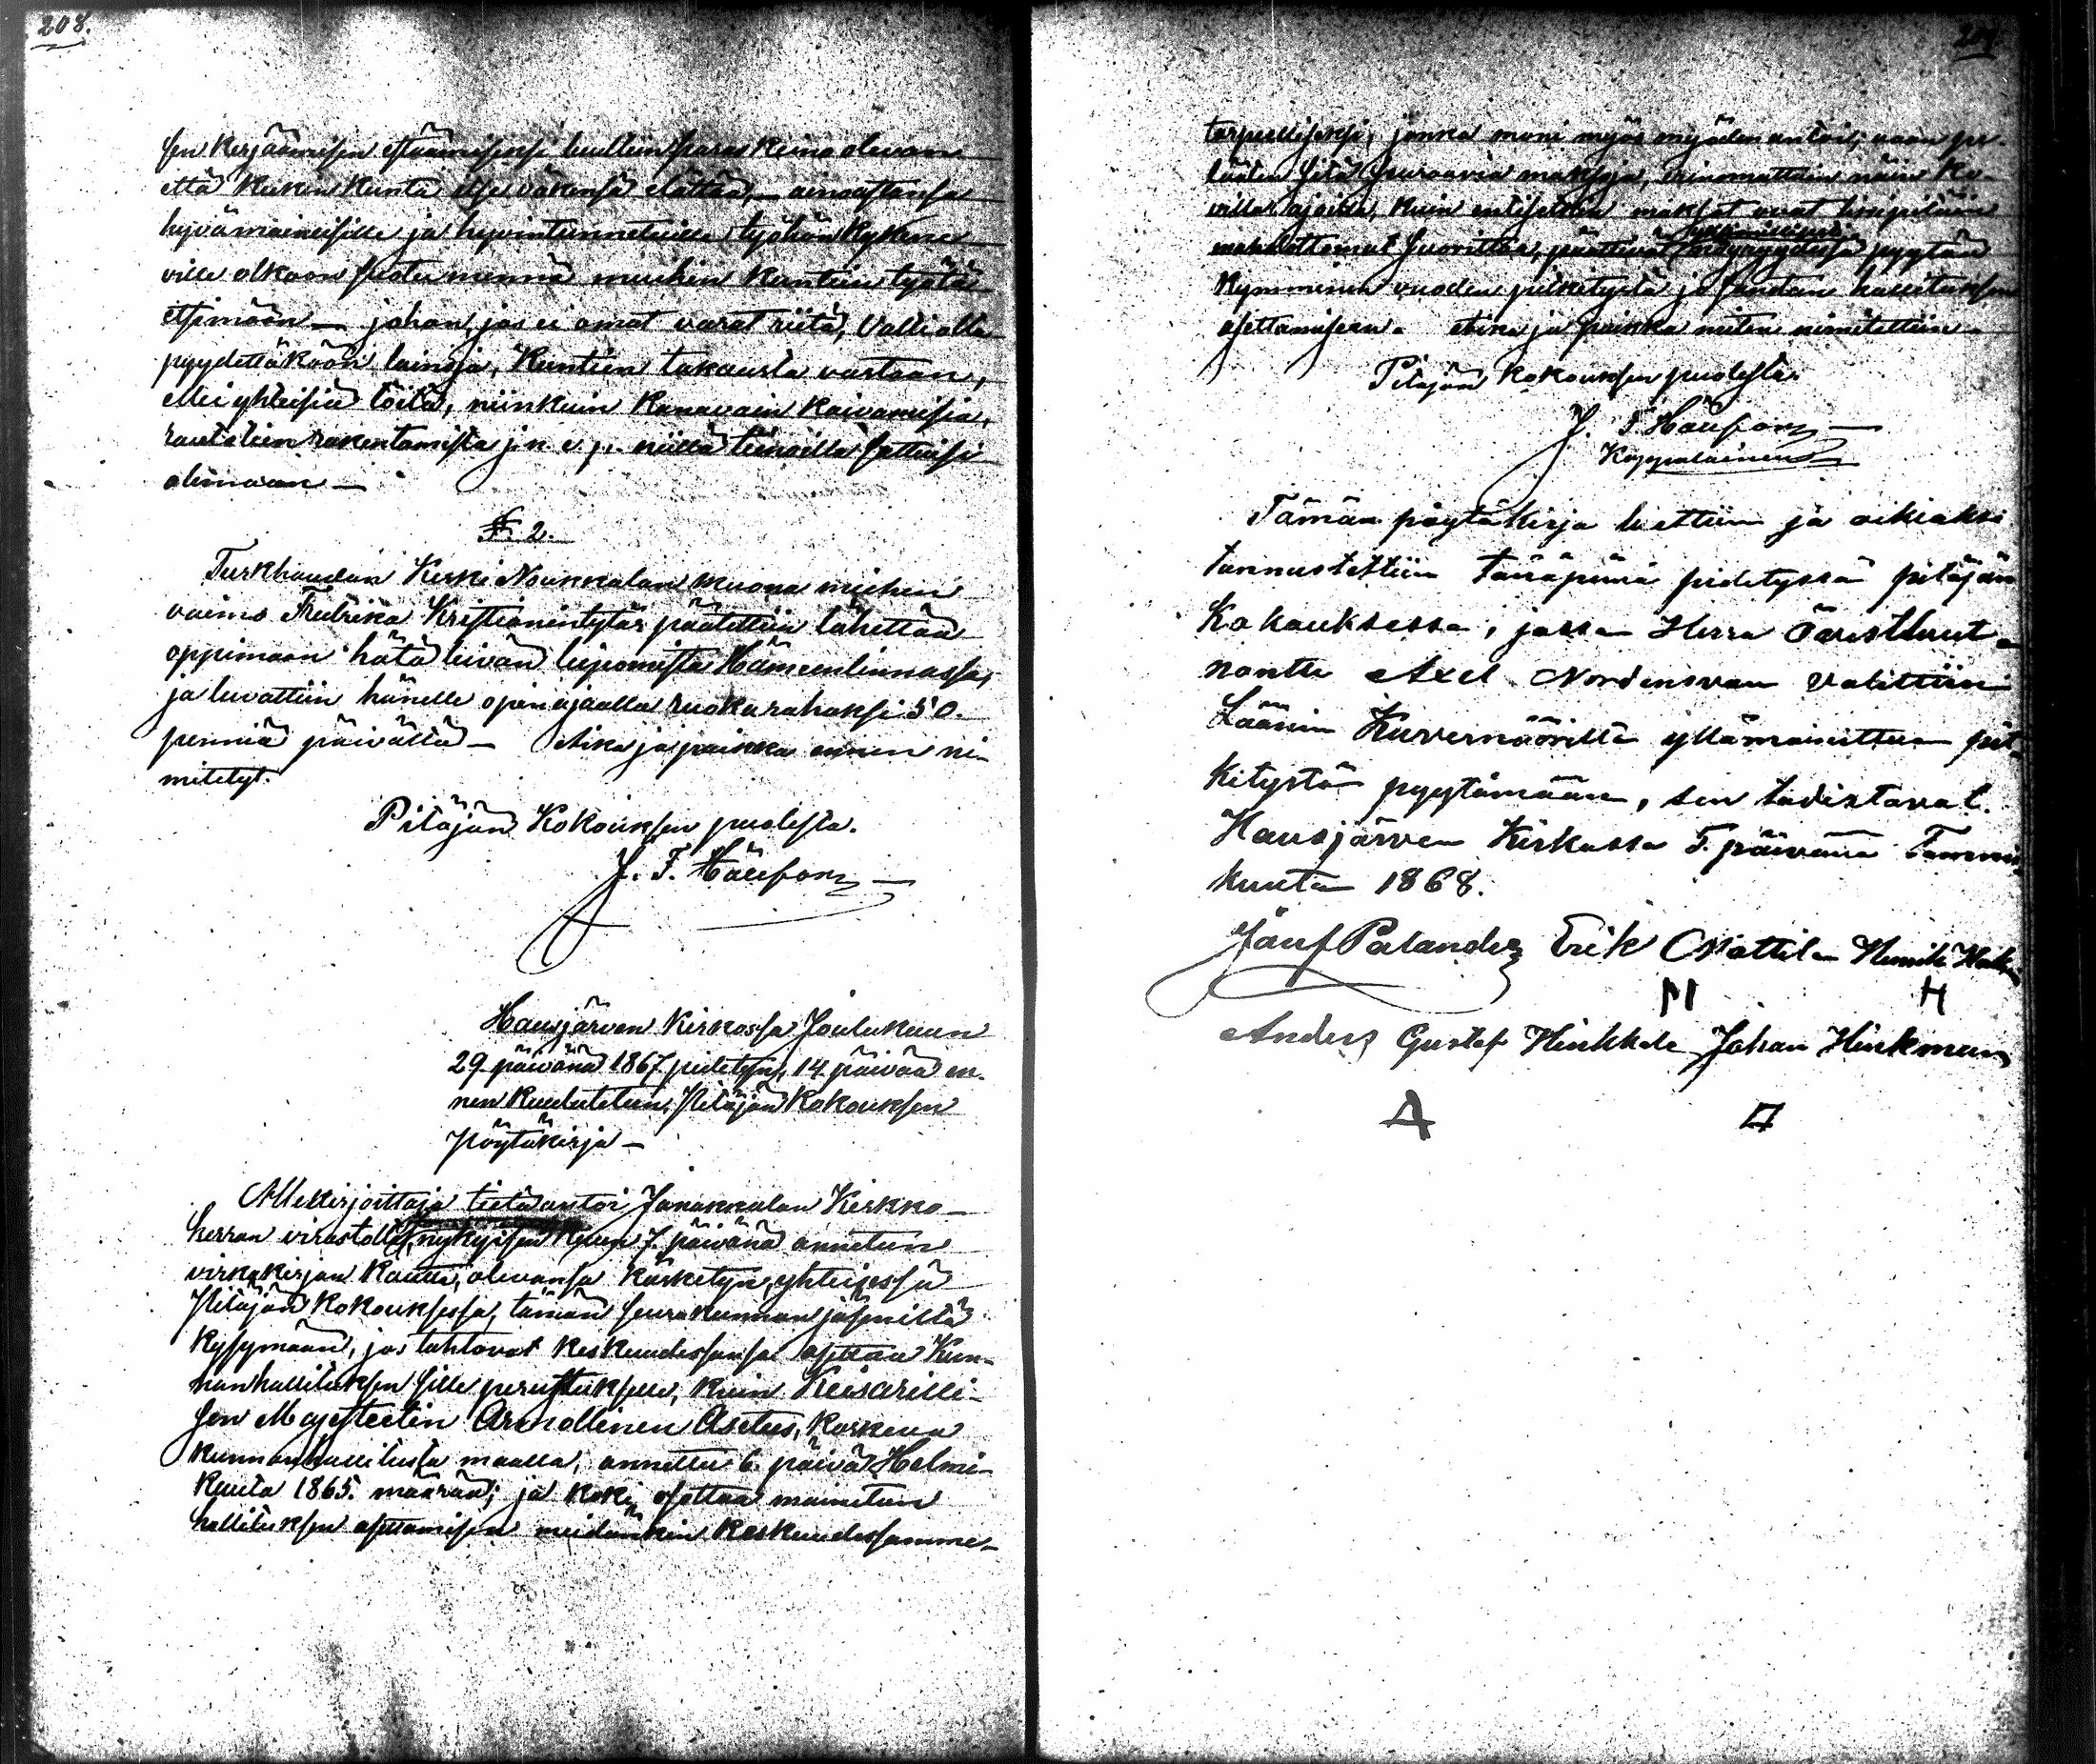 208.
sen kerjäämisen estämiseksi luultiin paras keino olevan
että kukin kunta itse väkensä elättää, — ainoastansa
hyvämaineisille ja hyvintunnetuille työhön kykene-
ville olkoon suotu mennä muuhin kuntiin työtä
etsimään — johon, jos ei omat varat riitä, Vallialta
pyydettäköön lainoja, kuntien takausta vastaan,
ellei yhteisiä töitä, niinkuin kanavain kaivamisia,
rautatien rakentamista j. n. e. p. niillä tienoilla sattuisi
olemaan —
§ 2.
Turkhaudan Kerki Noukkalan muona miehen
vaimo Fredrika Kristianintytär päätettiin lähettää
oppimaan hätä leivän leipomista Hämeenlinnassa,
ja luvattiin hänelle opin ajaalla ruoka rahaksi 50.
penniä päivältä — Aika ja paikka ennen ni-
mitetyt.
Pitäjän Kokouksen puolesta.
J. F. Häufor
Hausjärven kirkossa Joulukuun
29 päivänä 1867 pidetyn, 14 päivää en-
nen kuulutetun, Pitäjän Kokouksen
Pöytäkirja —
Allekirjoittaja tietä antoi Janakkalan Kirkko-
herran virastolta, nykyisen kuun 7. päivänä annetun
virkakirjan kautta, olevansa käsketyn, yhteisessä
Pitäjän kokouksessa, tämän seurakunnan jäseniltä
kysymään, jos tahtovat keskuudessansa asettaa Kun-
nanhallituksen sille perustukselle, kuin Keisarilli-
sen Majesteetin Armollinen Asetus, koskeva
kunnanhallitusta maalla, annettu 6. päivä Helmi-
kuuta 1865. määrää; ja koki osottaa mainitun
hallituksen asettamisen meidänkin keskuudessamme
209
tarpeelliseksi, jonka moni myös myöden antoi; vaan pe-
läten sitä seuraavia maksoja, erinomattain näin ko-
villa ajoilla, kuin entisetkin maksot ovat
mahdottomat suorittaa, päättivät pyytää
kymmenen vuoden pitkitystä ja hallituksen
asettamiseen. Aika ja paikka miten nimitettiin.
Pitäjän kokouksen puolesta.
J. F. Häufor
Kappalainen
Tämän pöytäkirja luettiin ja oikiaksi
tunnustettiin tänäpänä pidetyssä pitäjän
Kokouksessa, jossa Herra Öerstluut-
nantti Axel Nordensvan valittiin
Läänin Kuvernööriltä yllämainittua pit-
kitystä pyytämään, sen todistavat.
Hausjärven Kirkossa 5. päivänä Tammi-
kuuta 1868.
Josef Palander Erik Mattila Henrik
M H
Anders Gustaf Hinkkala Johan Hinkman